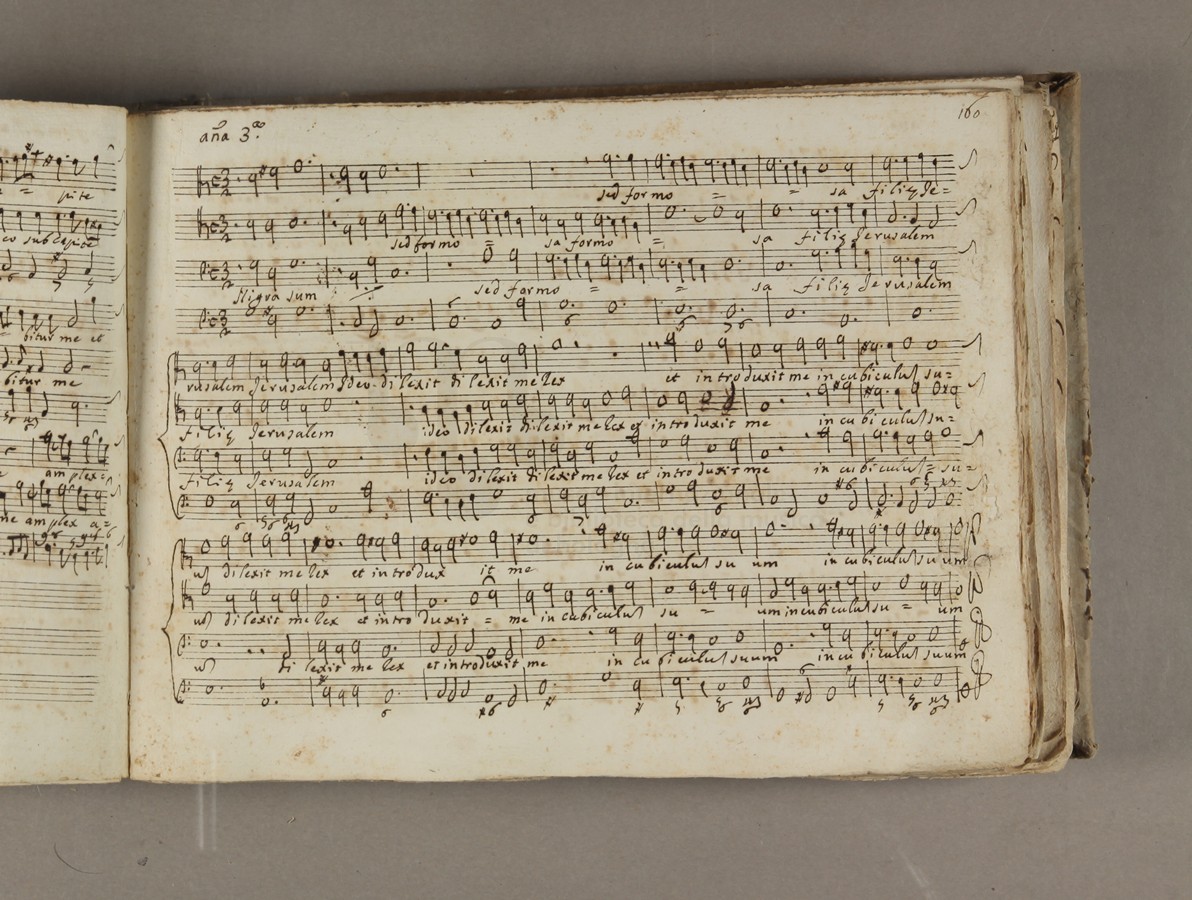 160
aña 3.ª
pite
sed formo = = sa filiȩ Je=
co sub capite
sed formo = sa formo = sa filiȩ Jerusalem
Nigra sum sed formo = = sa filiȩ Jerusalem
bitur me et
rusalem Jerusalem Ideo dilexit dilexit me Rex et introduxit me in cubiculũ su=
bitur me
filiȩ Jerusalem ideo dilexit dilexit me Rex et introduxit me in cubiculũ su=
filiȩ Jerusalem ideo dilexit dilexit me Rex et introduxit me in cubiculũ = su=
am plex=
me am plex a=
ũ dilexit me Rex et introdux it me in cubiculũ su um in cubiculũ su um
ũ dilexit me Rex et introduxit = me in cubiculũ su = um in cubiculũ su = um
ũ di lexit me Rex et introduxit me in cubiculũ suum in cubiculũ suum